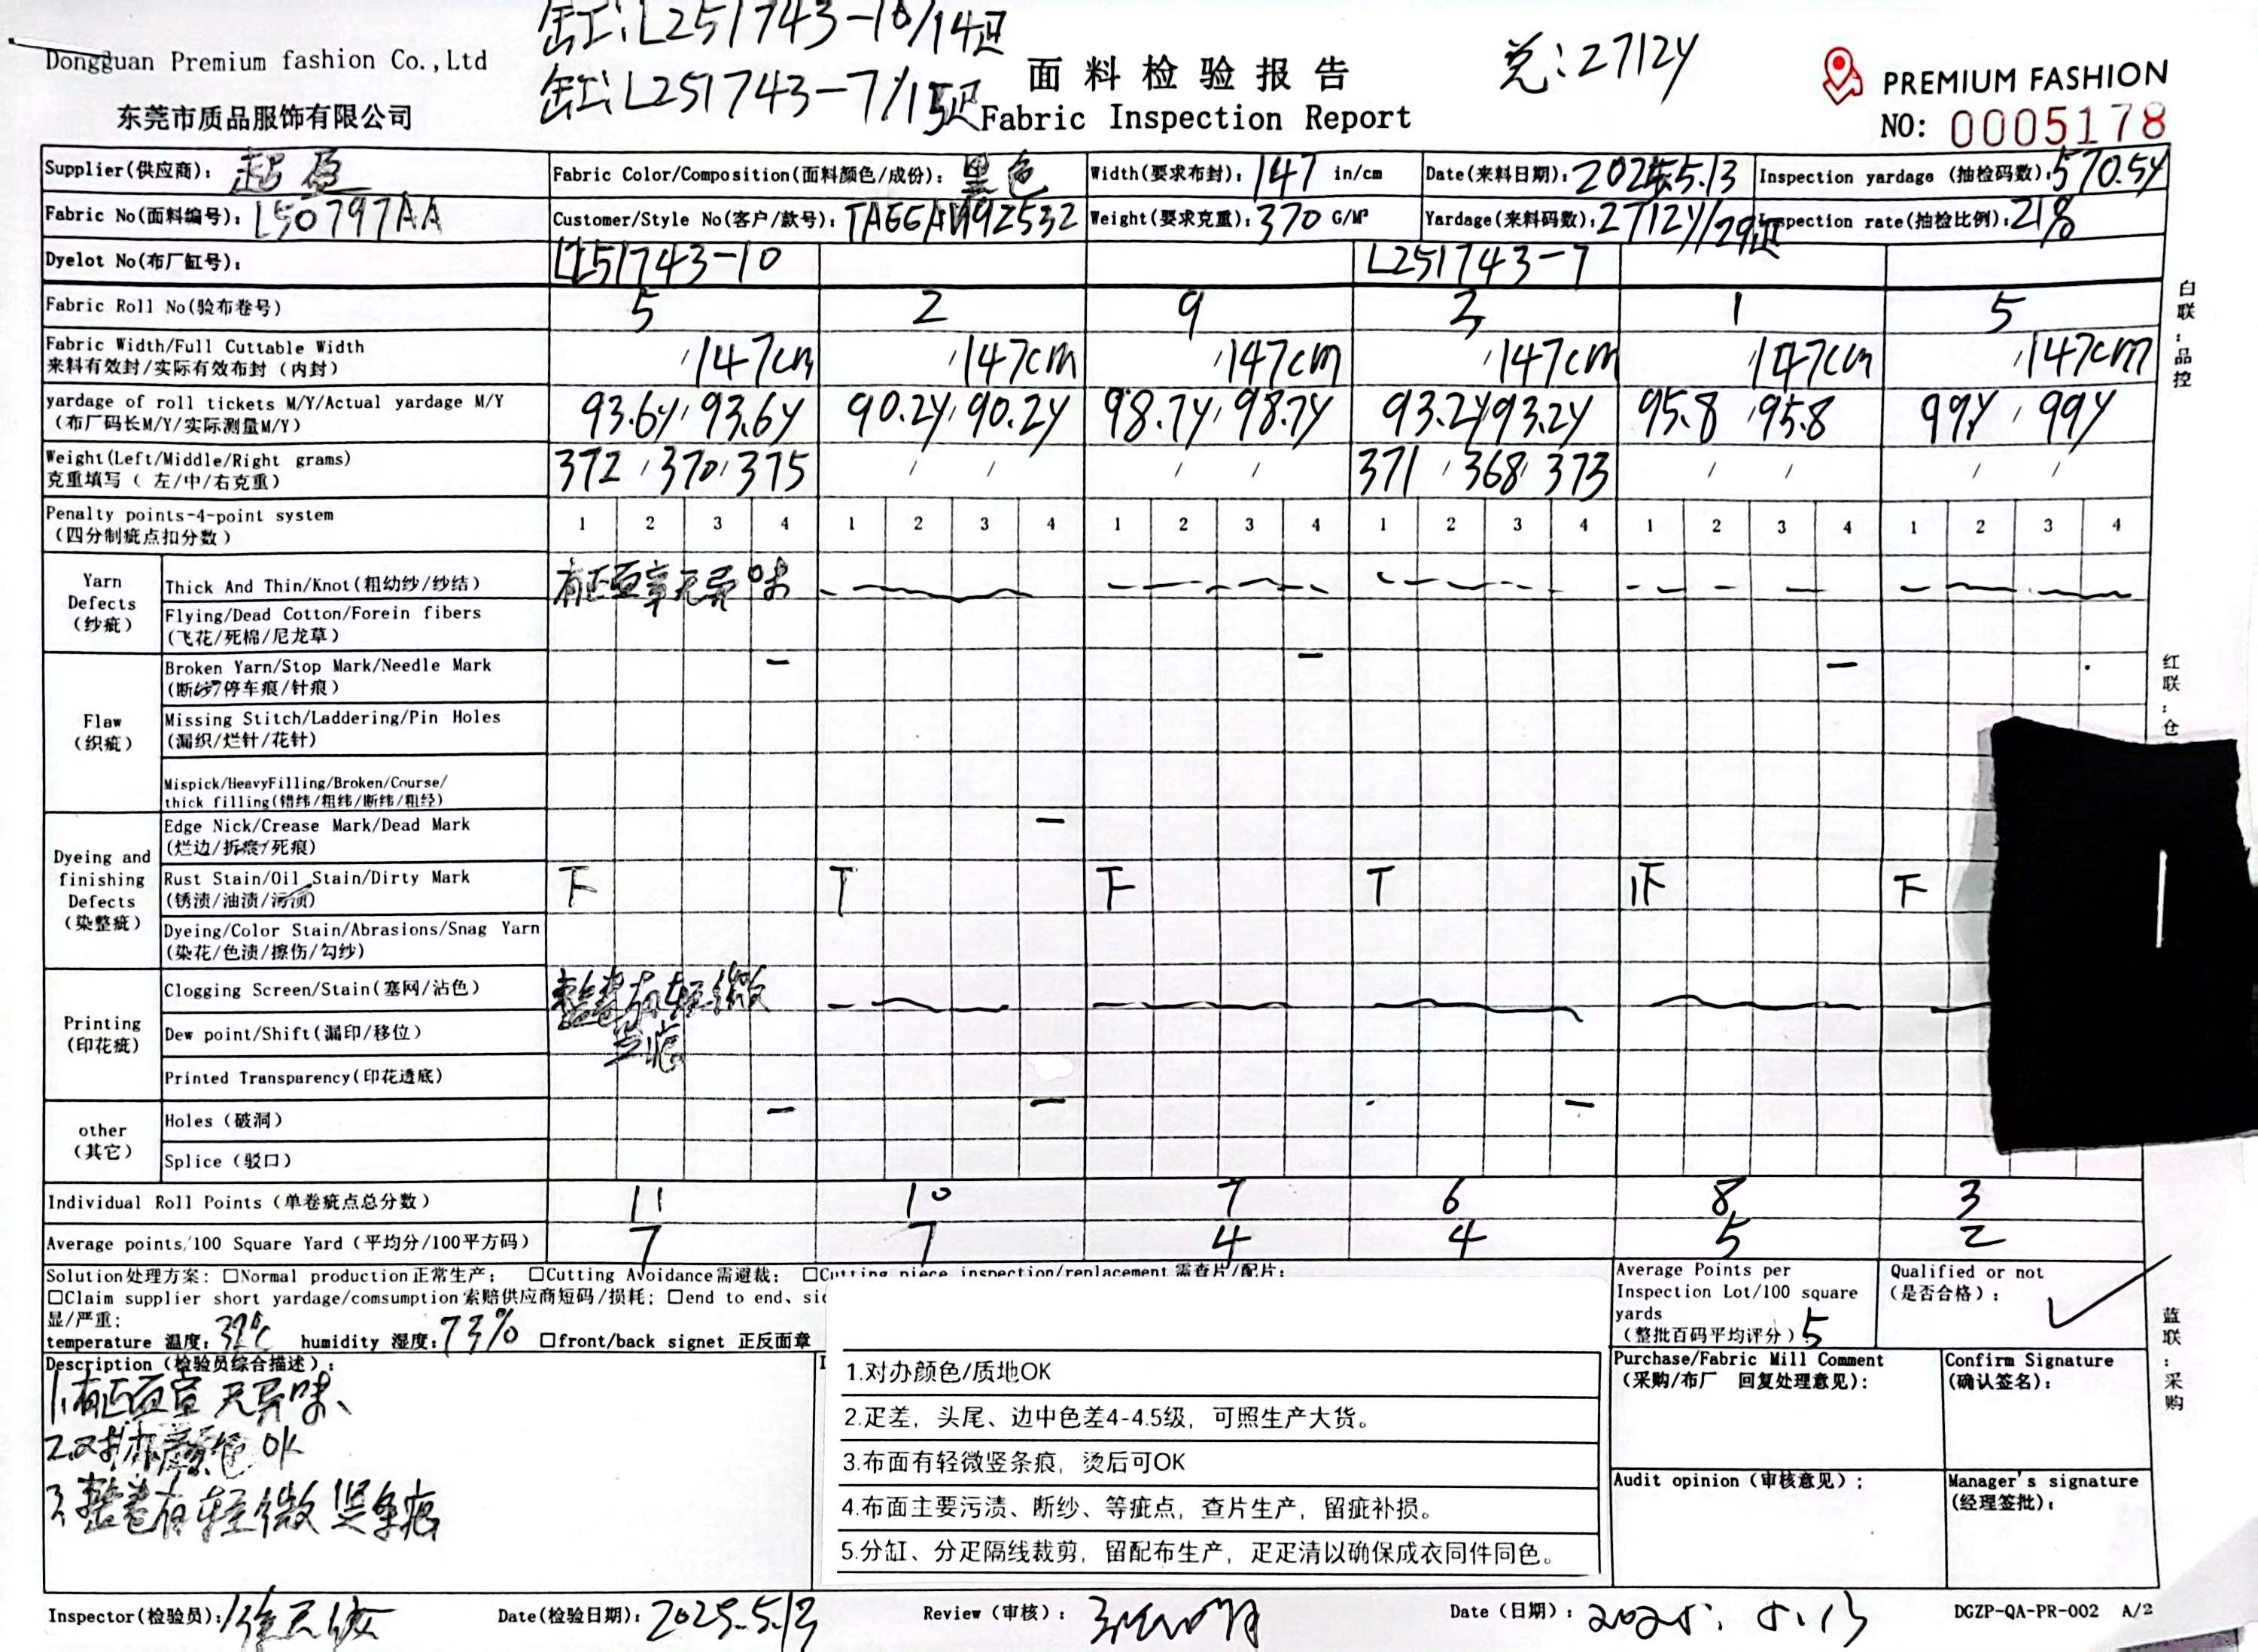 缸:L251743-10/14疋
Dongguan Premium fashion Co.,Ltd
缸:L251743-7/15疋
面料检验报告
总:2712Y
PREMIUM FASHION
东莞市质品服饰有限公司
Fabric Inspection Report
NO: 0005178
Supplier(供应商): 超盈 Fabric Color/Composition(面料颜色/成份): 黑色 Width(要求布封): 147 in/cm Date(来料日期): 2025.5.13 Inspection yardage (抽检码数): 570.5Y
Fabric No(面料编号): L50797AA Customer/Style No(客户/款号): Weight(要求克重): 370 G/M² Yardage(来料码数): 2712Y/29疋 Inspection rate(抽检比例): 21%
Dyelot No(布厂缸号): L251743-10 L251743-7
Fabric Roll No(验布卷号) 5 2 9 3 1 5
Fabric Width/Full Cuttable Width
来料有效封/实际有效布封 (内封) /147cm /147cm /147cm /147cm /147cm /147cm
yardage of roll tickets M/Y/Actual yardage M/Y
(布厂码长M/Y/实际测量M/Y) 93.6Y/93.6Y 90.2Y/90.2Y 98.7Y/98.7Y 93.2Y/93.2Y 95.8/95.8 99Y/99Y
Weight(Left/Middle/Right grams)
克重填写 ( 左/中/右克重) 372/370/375 / / / / 371/368/373 / / / /
Penalty points-4-point system
(四分制疵点扣分数) 1 2 3 4 1 2 3 4 1 2 3 4 1 2 3 4 1 2 3 4 1 2 3 4
Yarn Defects (纱疵)
Thick And Thin/Knot(粗幼纱/纱结) 有正面章无异味
Flying/Dead Cotton/Forein fibers
(飞花/死棉/尼龙草)
Flaw (织疵)
Broken Yarn/Stop Mark/Needle Mark
(断纱/停车痕/针痕) – – –
Missing Stitch/Laddering/Pin Holes
(漏织/烂针/花针)
Mispick/HeavyFilling/Broken/Course/
thick filling(错纬/粗纬/断纬/粗经)
Dyeing and finishing Defects (染整疵)
Edge Nick/Crease Mark/Dead Mark
(烂边/拆痕/死痕) –
Rust Stain/Oil Stain/Dirty Mark
(锈渍/油渍/污渍) 下 T 下 T 下 下
Dyeing/Color Stain/Abrasions/Snag Yarn
(染花/色渍/擦伤/勾纱)
Printing (印花疵)
Clogging Screen/Stain(塞网/沾色) 整卷有轻微
Dew point/Shift(漏印/移位)
Printed Transparency(印花透底)
other (其它)
Holes (破洞) – – –
Splice (驳口)
Individual Roll Points (单卷疵点总分数) 11 10 7 6 8 3
Average points/100 Square Yard (平均分/100平方码) 7 7 4 4 5 2
Solution处理方案: □Normal production正常生产; □Cutting Avoidance需避裁; □Cutting piece inspection/replacement 需查片/配片;
□Claim supplier short yardage/comsumption索赔供应商短码/损耗; □end to end、
显/严重;
temperature 温度: 32℃ humidity 湿度: 73% □front/back signet 正反面章
Average Points per
Inspection Lot/100 square
yards
(整批百码平均评分) 5
Qualified or not
(是否合格): ✓
Description (检验员综合描述):
1.有正面章 无异味、
2.对办颜色 OK
3.整卷有轻微竖条痕
1.对办颜色/质地OK
2.疋差, 头尾、边中色差4-4.5级, 可照生产大货。
3.布面有轻微竖条痕, 烫后可OK
4.布面主要污渍、断纱、等疵点, 查片生产, 留疵补损。
5.分缸、分疋隔线裁剪, 留配布生产, 疋疋清以确保成衣同件同色。
Purchase/Fabric Mill Comment
(采购/布厂 回复处理意见):
Confirm Signature
(确认签名):
Audit opinion (审核意见);
Manager's signature
(经理签批):
Inspector(检验员): Date(检验日期): 2025.5.13 Review (审核): Date (日期): 2025. 5.13 DGZP-QA-PR-002 A/2
白联:品控
红联:仓
蓝联:采购